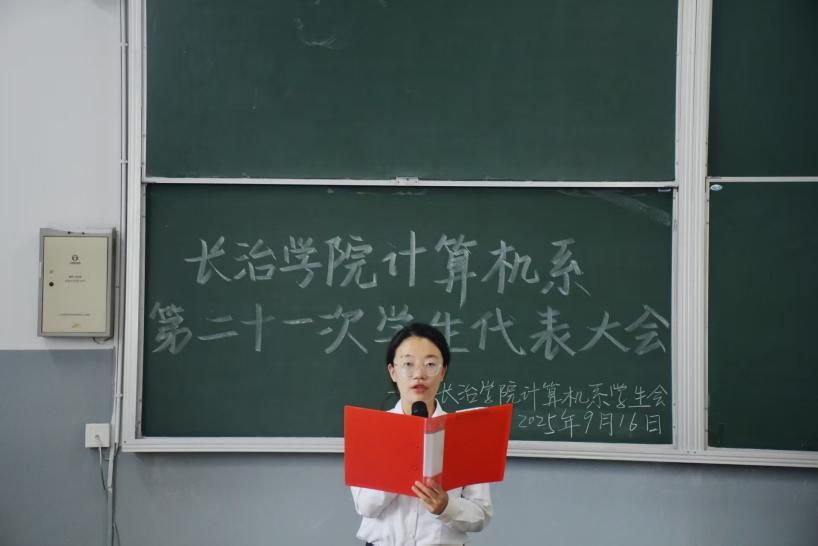 长治学院计算机系
第二十一次学生代表大会
长治学院计算机系学生会
2025年9月16日